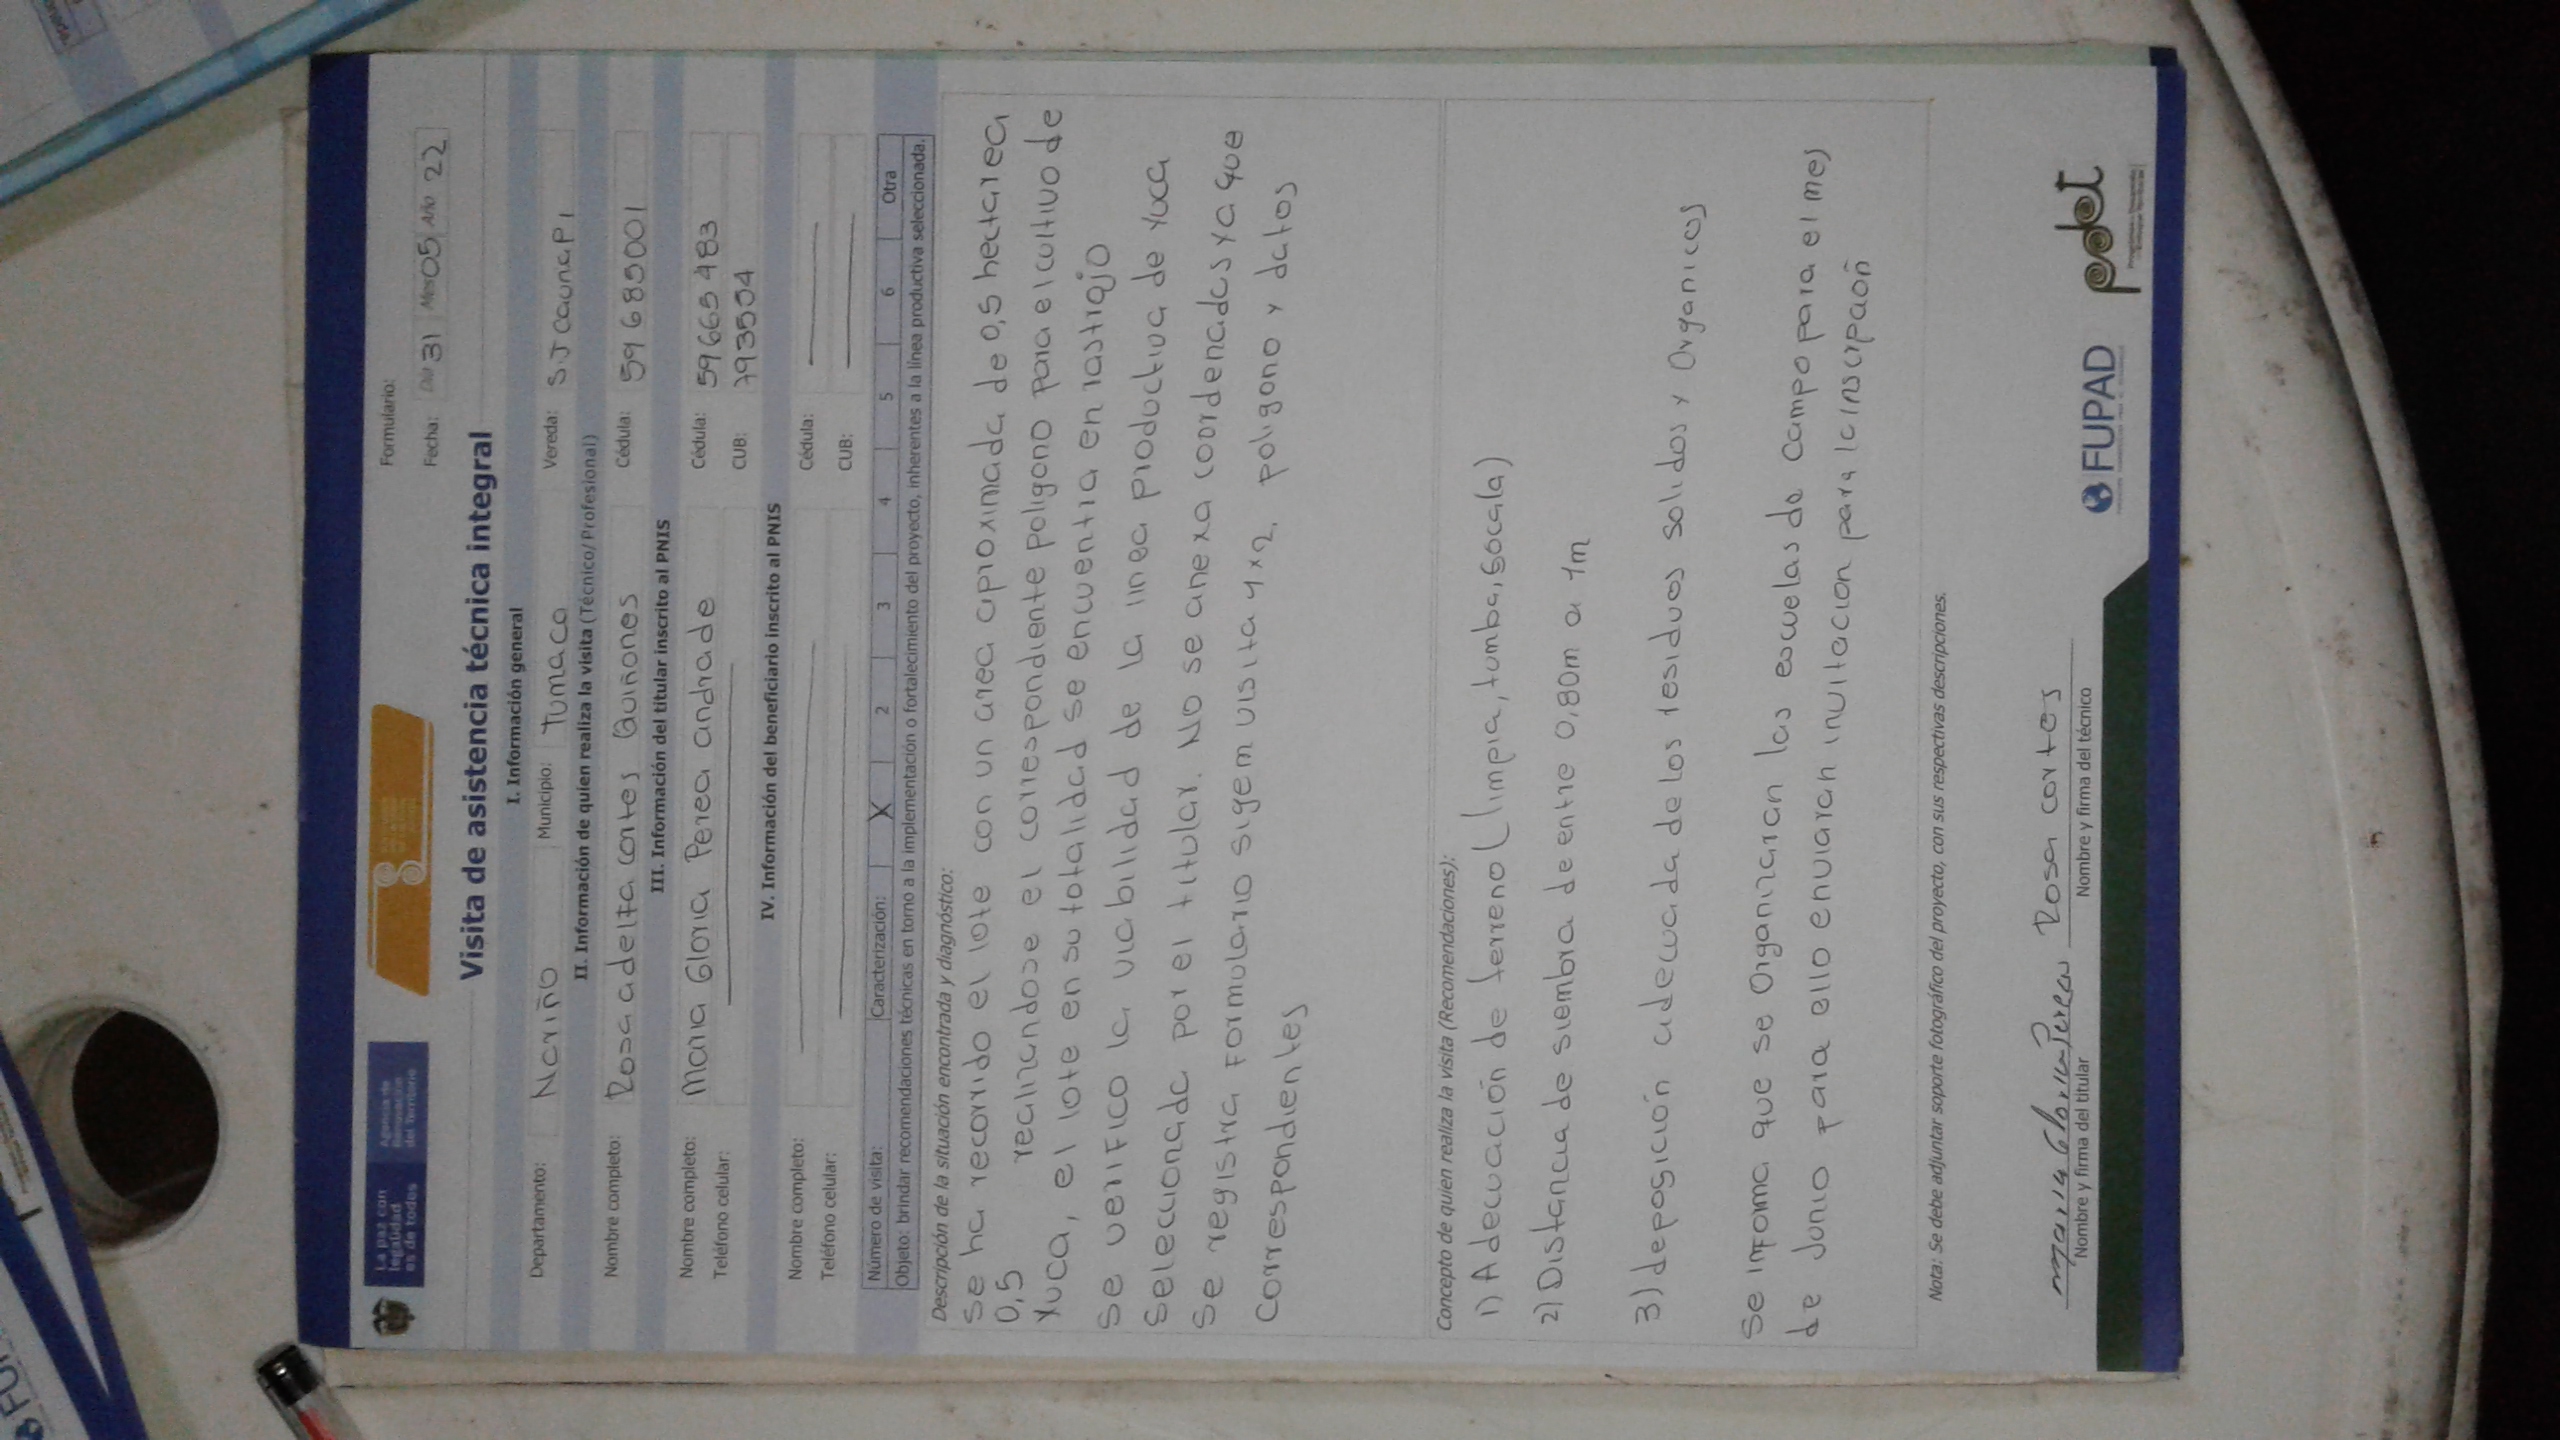 La paz con legalidad es de todos
Agencia de Renovación del Territorio
Formulario:
Fecha: Día 31 Mes 05 Año 22
Visita de asistencia técnica integral
I. Información general
Departamento: Nariño Municipio: Tumaco Vereda: S.J Caunapi
II. Información de quien realiza la visita (Técnico/Profesional)
Nombre completo: Rosa adelfa cortes Quiñones Cédula: 59685001
III. Información del titular inscrito al PNIS
Nombre completo: Maria Gloria Perea andrade Cédula: 59665483
Teléfono celular: CUB: 7935504
IV. Información del beneficiario inscrito al PNIS
Nombre completo: Cédula:
Teléfono celular: CUB:
Número de visita: Caracterización: X 2 3 4 5 6 Otra
Objeto: brindar recomendaciones técnicas en torno a la implementación o fortalecimiento del proyecto, inherentes a la línea productiva seleccionada.
Descripción de la situación encontrada y diagnóstico:
Se ha recorrido el lote con un area aproximada de 0,5 hectarea
0,5 realizandose el correspondiente poligono para el cultivo de
Yuca, el lote en su totalidad se encuentra en rastrojo
Se verifico la viabilidad de la linea productiva de Yuca
Seleccionada por el titular. No se anexa coordenadas ya que
Se registra Formulario sigem visita 1x2, poligono y datos
Correspondientes
Concepto de quien realiza la visita (Recomendaciones):
1) Adecuación de terreno (limpia, tumba, socala)
2) Distancia de siembra de entre 0,80m a 1m
3) deposición adecuada de los residuos solidos y Organicos
Se infoma que se Organizaran las escuelas de campo para el mes
de Junio para ello enviaran invitacion para la inscripción
Nota: Se debe adjuntar soporte fotográfico del proyecto, con sus respectivas descripciones.
maria Gloria Perea Rosa cortes
Nombre y firma del titular Nombre y firma del técnico
FUPAD
pdet